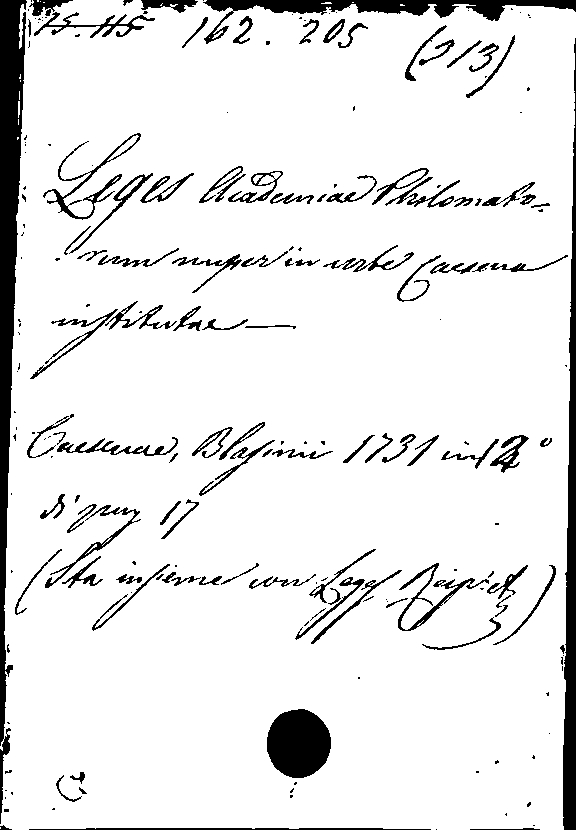 15.115 162.205 (213)
Leges Academiae Philomato-
rum nuper in urbe Caesena
institutae —
Caesenae, Blasinii 1731 in 12°
di pag 17
(Sta insieme con Leges